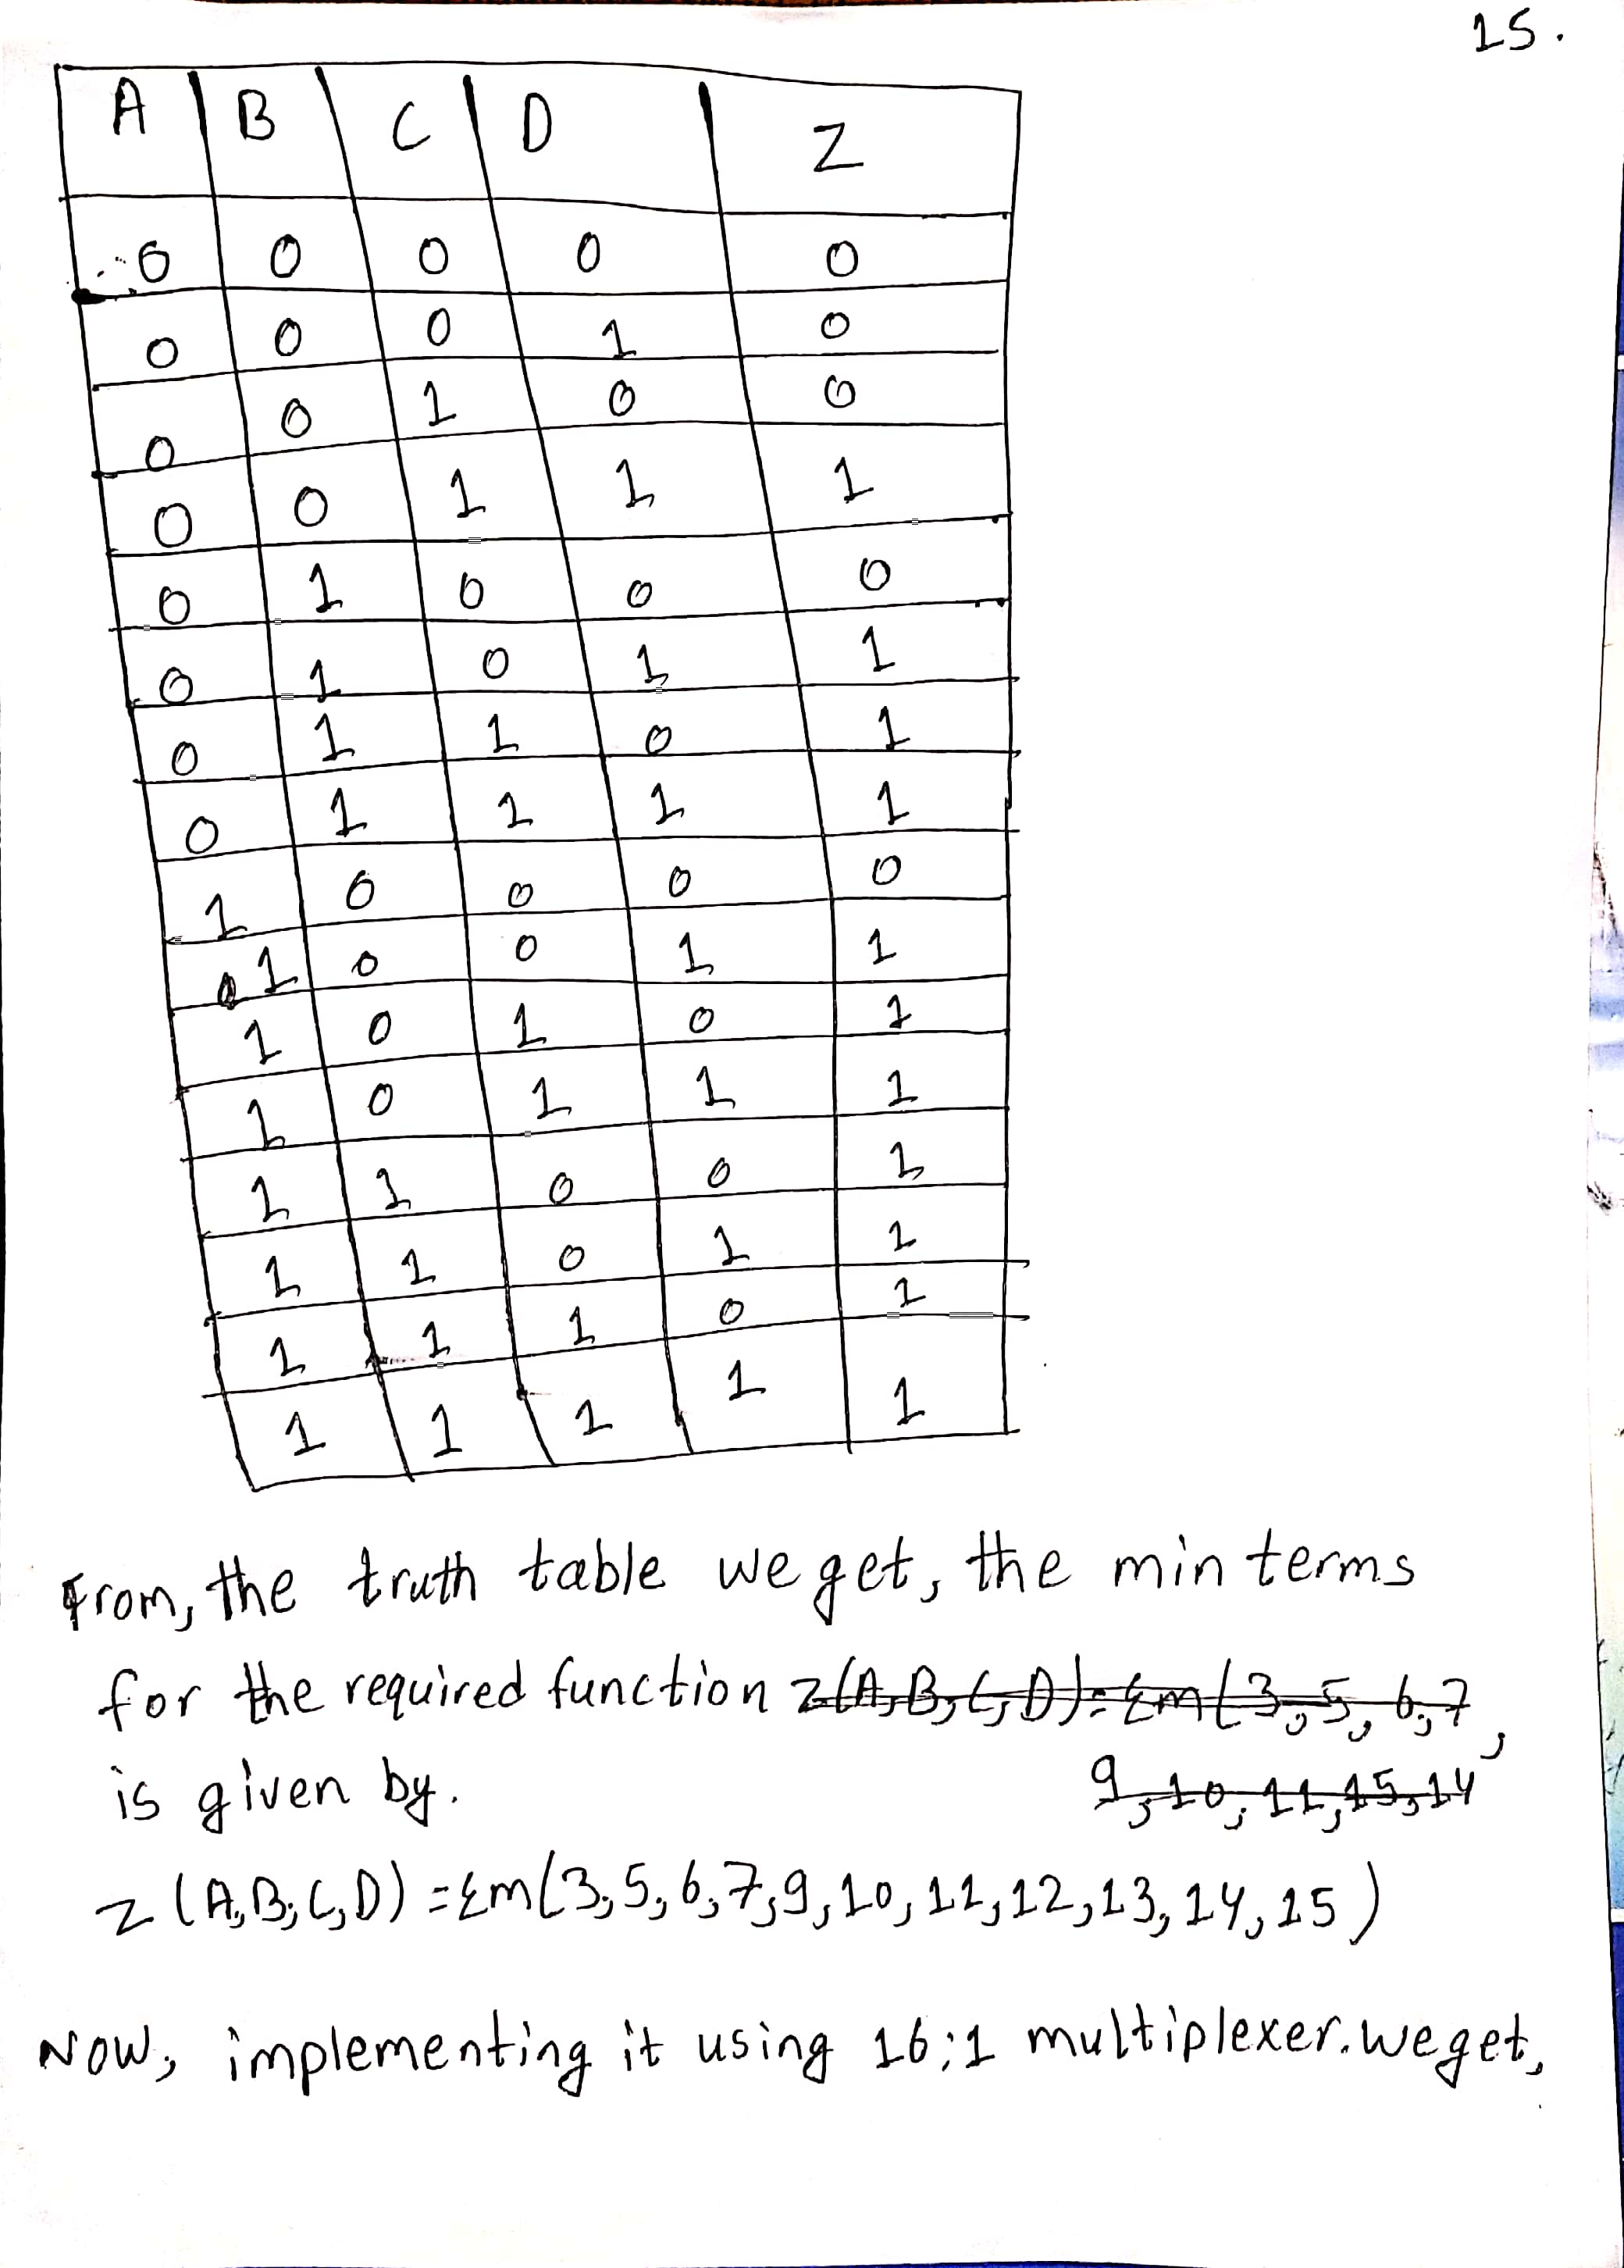 15.
A B C D Z
0 0 0 0 0
0 0 0 1 0
0 0 1 0 0
0 0 1 1 1
0 1 0 0 0
0 1 0 1 1
0 1 1 0 1
0 1 1 1 1
1 0 0 0 0
1 0 0 1 1
1 0 1 0 1
1 0 1 1 1
1 1 0 0 1
1 1 0 1 1
1 1 1 0 1
1 1 1 1 1
From, the truth table we get, the min terms
for the required function z(A,B,C,D)=Σm(3,5,6,7,
9,10,11,15,14
is given by.
z(A,B,C,D)=Σm(3,5,6,7,9,10,11,12,13,14,15)
Now, implementing it using 16:1 multiplexer. we get,